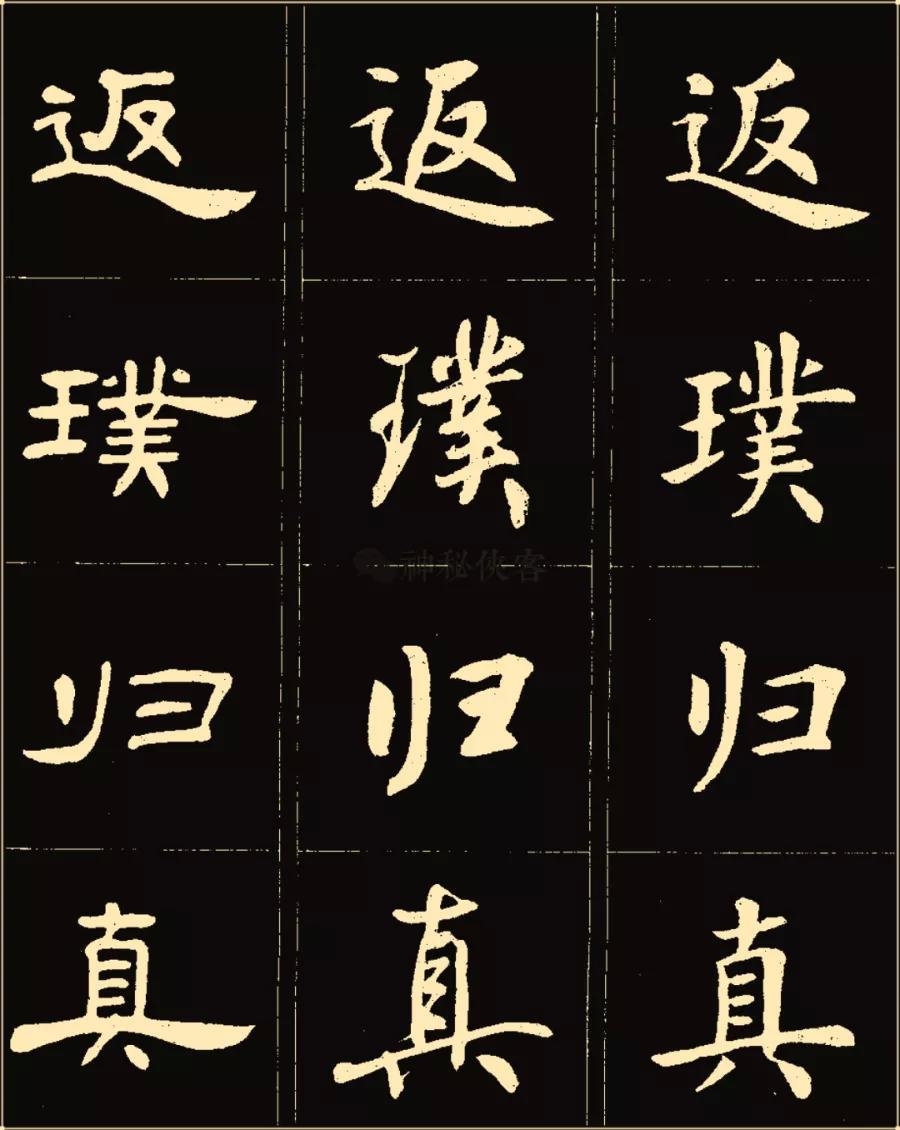 返 返 返
璞 璞 璞
神秘侠客
归 归 归
真 真 真